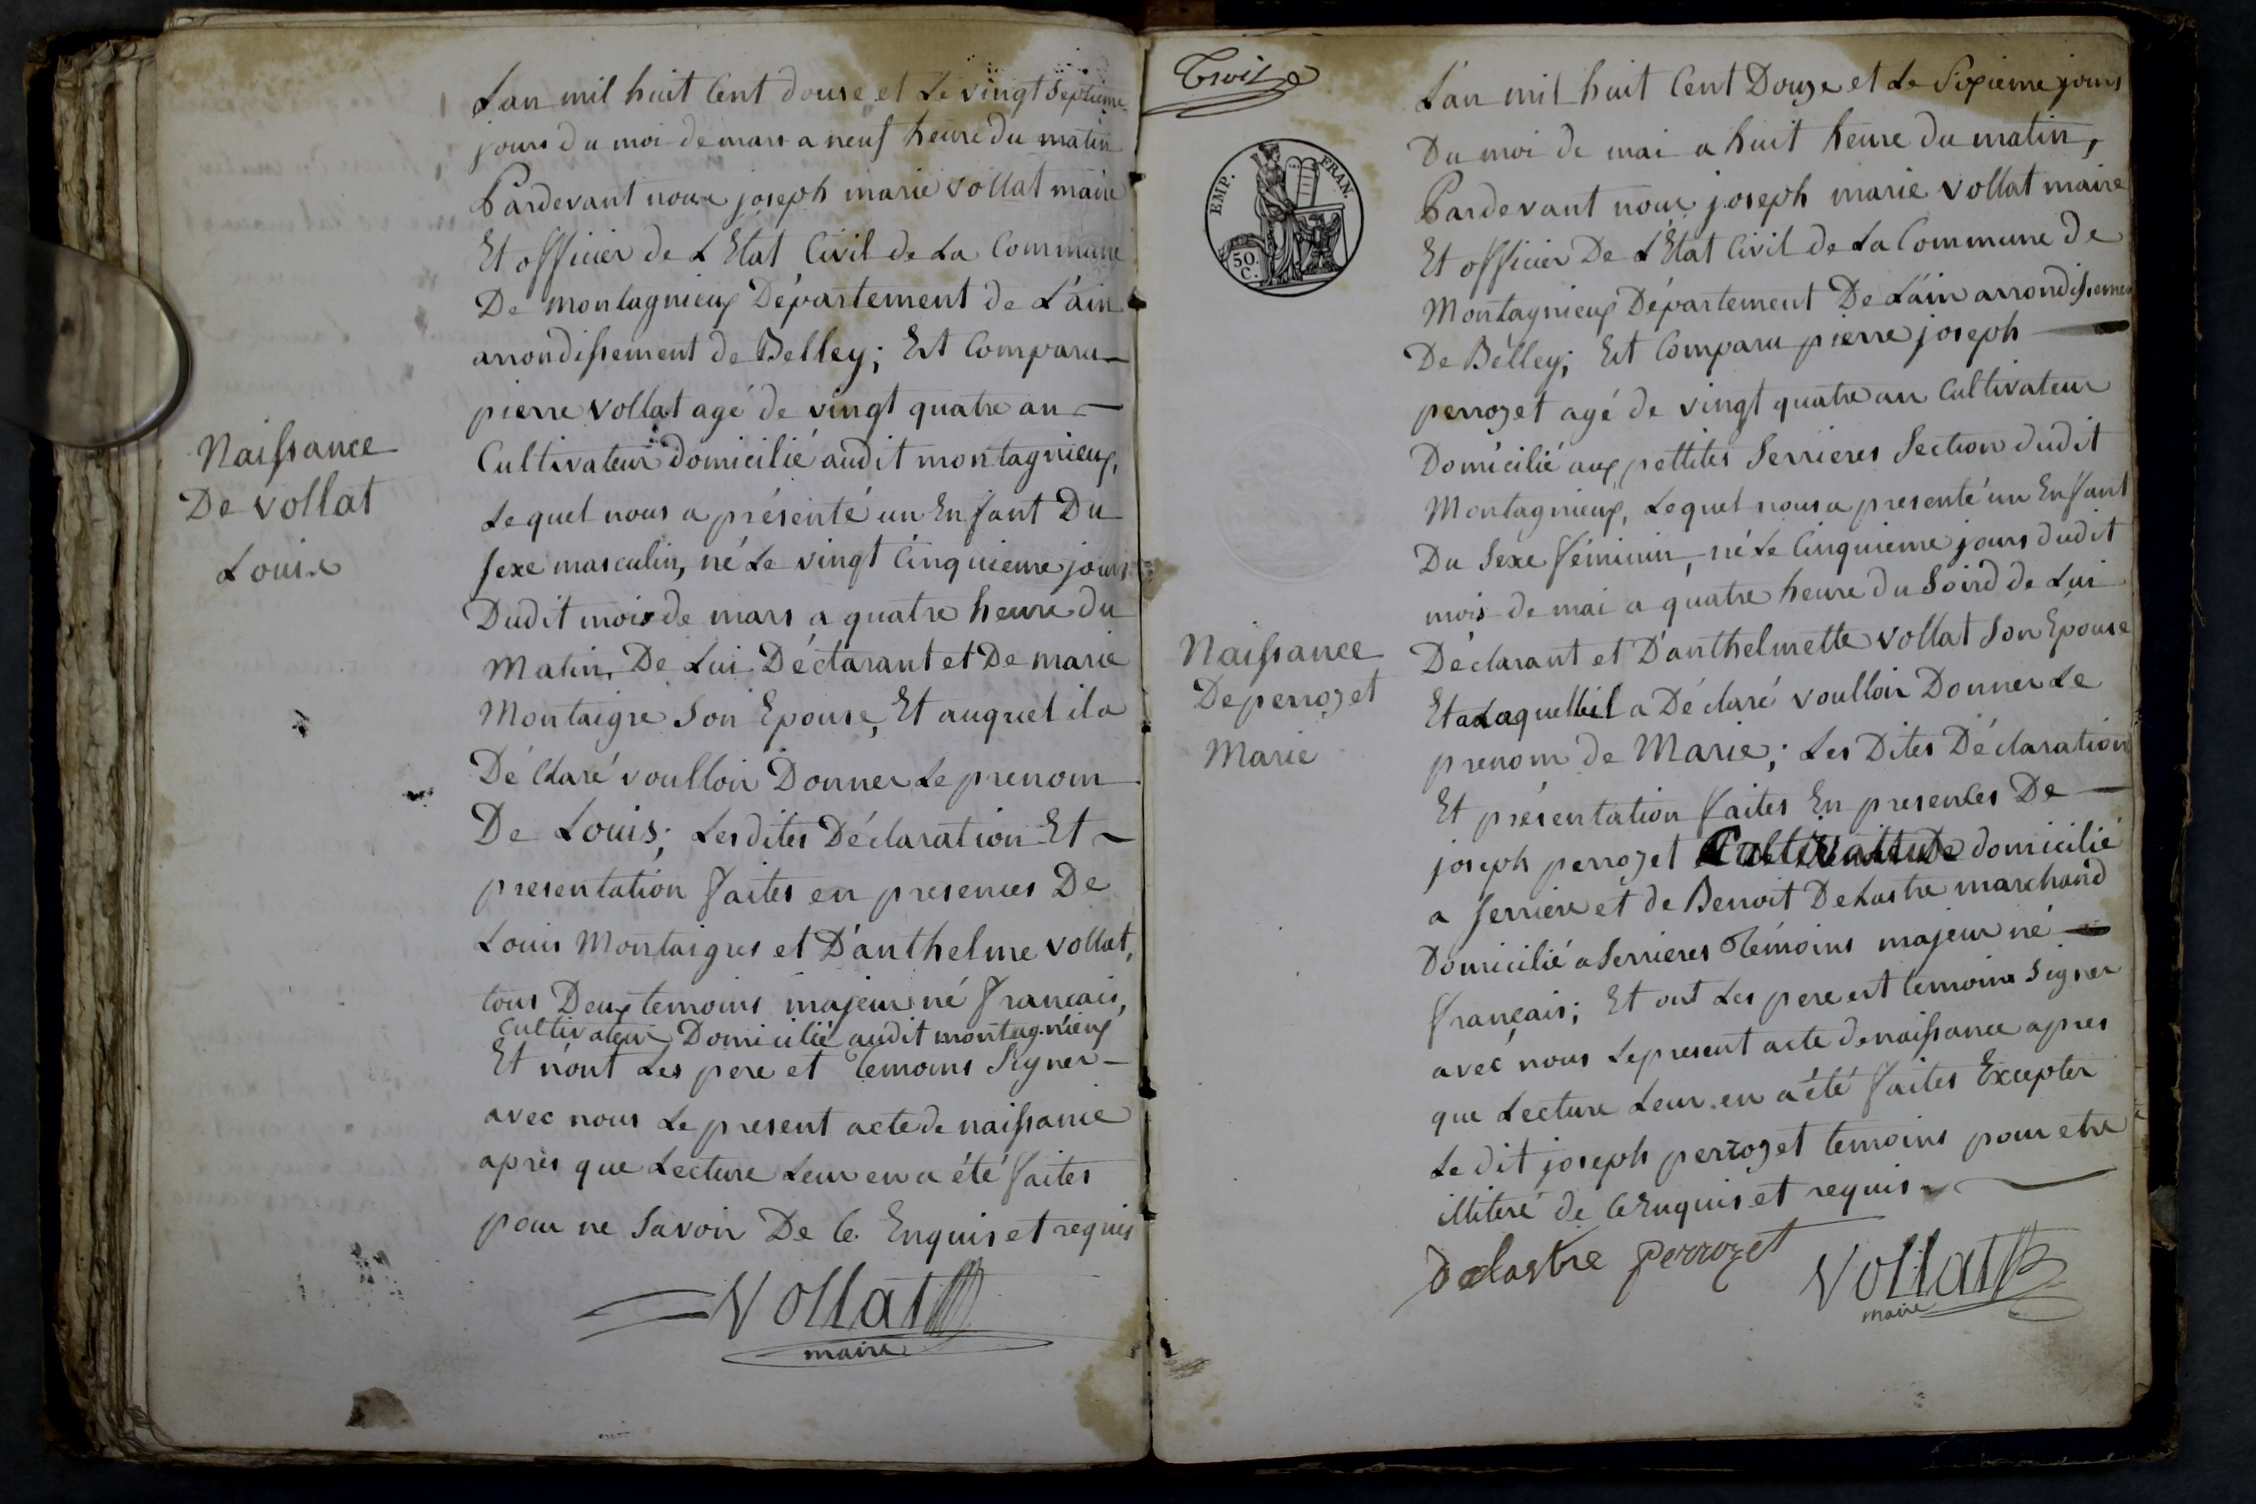 Lan mil huit Cent douse et Le vingt Septieme
jours du moi de mars a neuf heure du matin
Pardevant nous joseph marie vollat maire
Et officier de L Etat Civil de La Commune
De montagnieux Département de L'ain
arrondissement de Belley; Est Comparu
pierre vollat agé de vingt quatre an
Cultivateur domicilié audit montagnieux,
Lequel nous a présenté un Enfant Du
Sexe masculin, né Le vingt Cinquieme jours
Dudit mois de mars a quatre heure du
Matin, De Lui Déclarant et De marie
Montaigre Son Epouse, Et auquel il a
Déclaré voulloir Donner Le prenom
De Louis; Lesdites Déclaration Et
presentation faites en presences De
Louis Montaigres et D'anthelme vollat,
tous Deux temoins majeur né francais,
Cultivateur Domicilié audit montagnieux
Et n'ont Les pere et temoins Signer
avec nous Le present acte de naissance
après que Lecture Leur en a été faites
pour ne Savoir De Ce Enquis et requis
Vollat
maire
Naissance
De vollat
Louis
Trois
EMP. FRAN.
50.
C.
L'an mil huit Cent Douze et Le Sixieme jours
Du moi de mai a huit heure du matin,
Pardevant nous joseph marie vollat maire
Et officier De L'Etat Civil de La Commune de
Montagnieux Département De L'ain arrondissemen
De Belley; Est Comparu pierre joseph
perrozet agé de vingt quatre an Cultivateur
Domicilié aux pettites Serrieres Section dudit
Montagnieux, Lequel nous a presenté un Enfant
Du Sexe féminin, né Le Cinquieme jours dudit
mois de mai a quatre heure du Soird de Lui
Déclarant et D'anthelmette vollat Son Epouse
Et a Laquelle il a Déclaré voulloir Donner Le
prenom de Marie; Les Dites Déclaration
Et présentation faites En presences De
joseph perrozet domicilié
a Serriere et de Benoit Delastre marchand
Domicilié a Serrieres Témoins majeur né
français; Et ont Les pere et temoins Signer
avec nous Le present acte de naissance apres
que Lecture Leur en a été faites Excepter
Le dit joseph perrozet temoins pour etre
illiteré de Ce Enquis et requis
Delastre perrozet Vollat
maire
Naissance
De perrozet
Marie